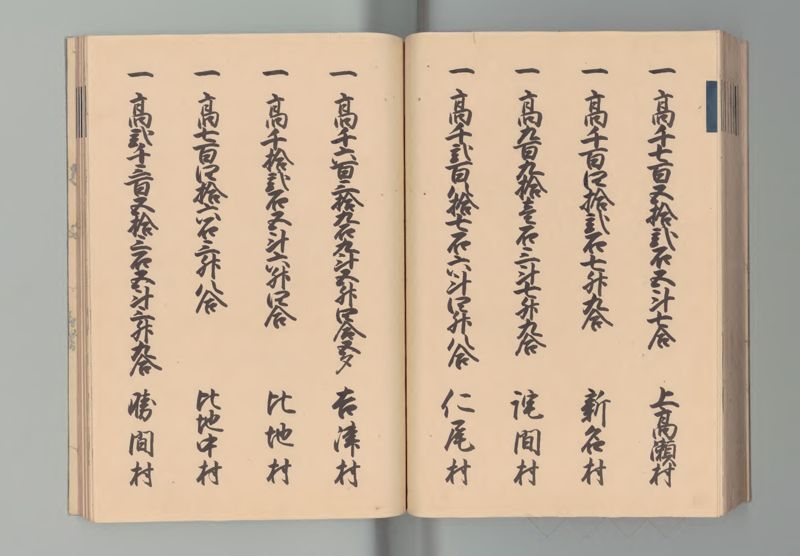 一 高千七百五拾弐石五斗七合 上高瀬村
一 高千百四拾弐石七升九合 新名村
一 高九百九拾壱石三斗七升九合 詫間村
一 高千弐百八拾七石六斗四升八合 仁尾村
一 高千六百三拾九石九斗五升四合五夕 吉津村
一 高千拾弐石五斗六升四合 比地村
一 高七百四拾六石三升八合 比地中村
一 高弐千三百五拾三石五斗三升九合 勝間村